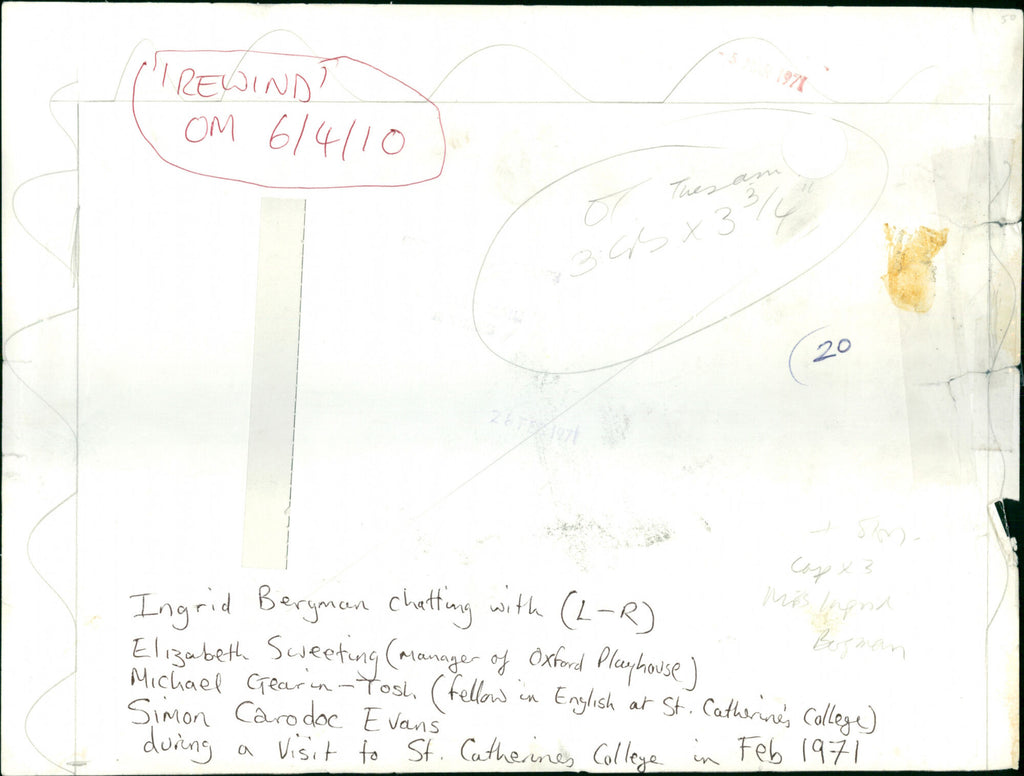 "REWIND"
OM 6/4/10
1971
OT Tues am
3 cols x 3 3/4"
(20
1971
Cap x 3
Miss Ingrid
Bergman
Ingrid Bergman chatting with (L-R)
Elizabeth Sweeting (manager of Oxford Playhouse)
Michael Gearin-Tosh (fellow in English at St. Catherine's College)
Simon Carodoc Evans
during a visit to St. Catherines College in Feb 1971